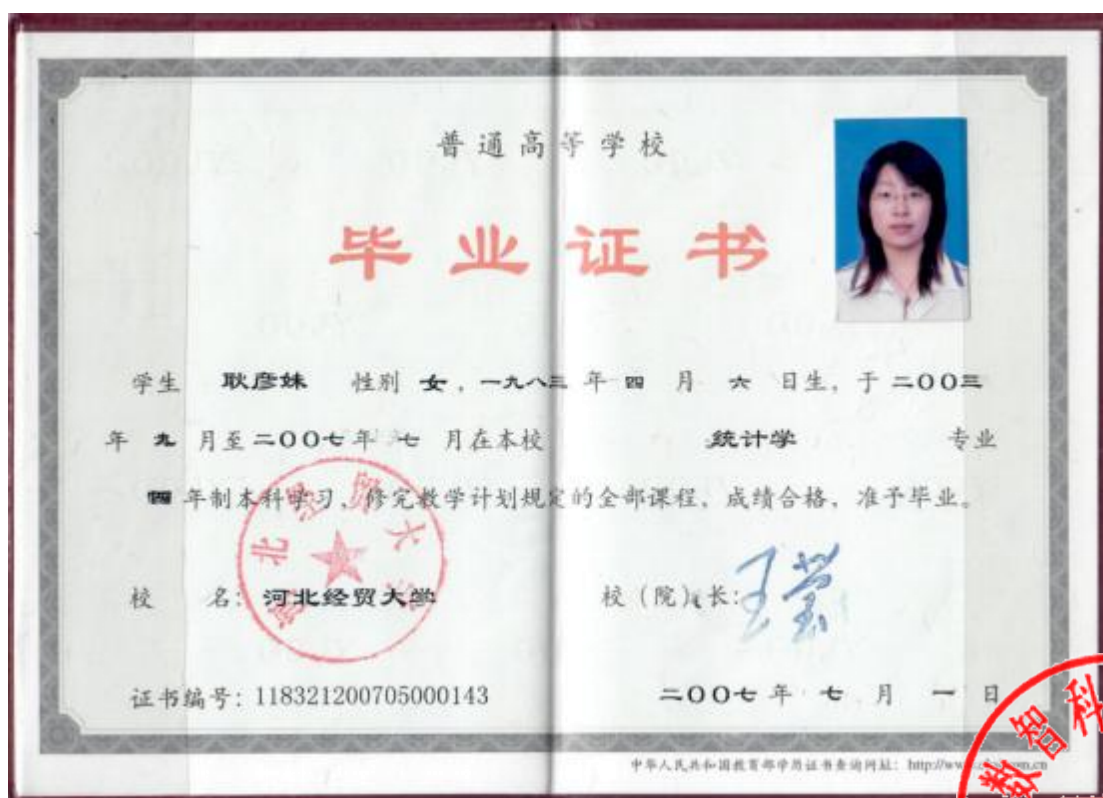 普通高等学校
毕业证书
学生 耿彦妹 性别 女，一九八三 年 四 月 六 日生，于 二〇〇三
年 九 月至 二〇〇七 年 七 月在本校 统计学 专业
四 年制本科学习，修完教学计划规定的全部课程，成绩合格，准予毕业。
校 名：河北经贸大学 校（院）长：王莹
河北经贸大学
证书编号：118321200705000143 二〇〇七 年 七 月 一 日
中华人民共和国教育部学历证书查询网址：http://www.
数智科